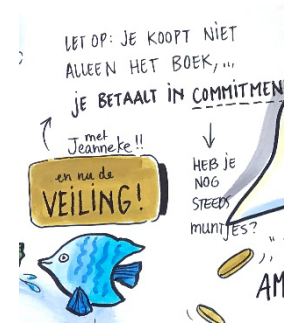 LET OP: JE KOOPT NIET
ALLEEN HET BOEK,...
JE BETAALT IN COMMITMEN
met
Jeanneke!!
en nu de
VEILING!
HEB JE
NOG
STEEDS
muntjes?
AM